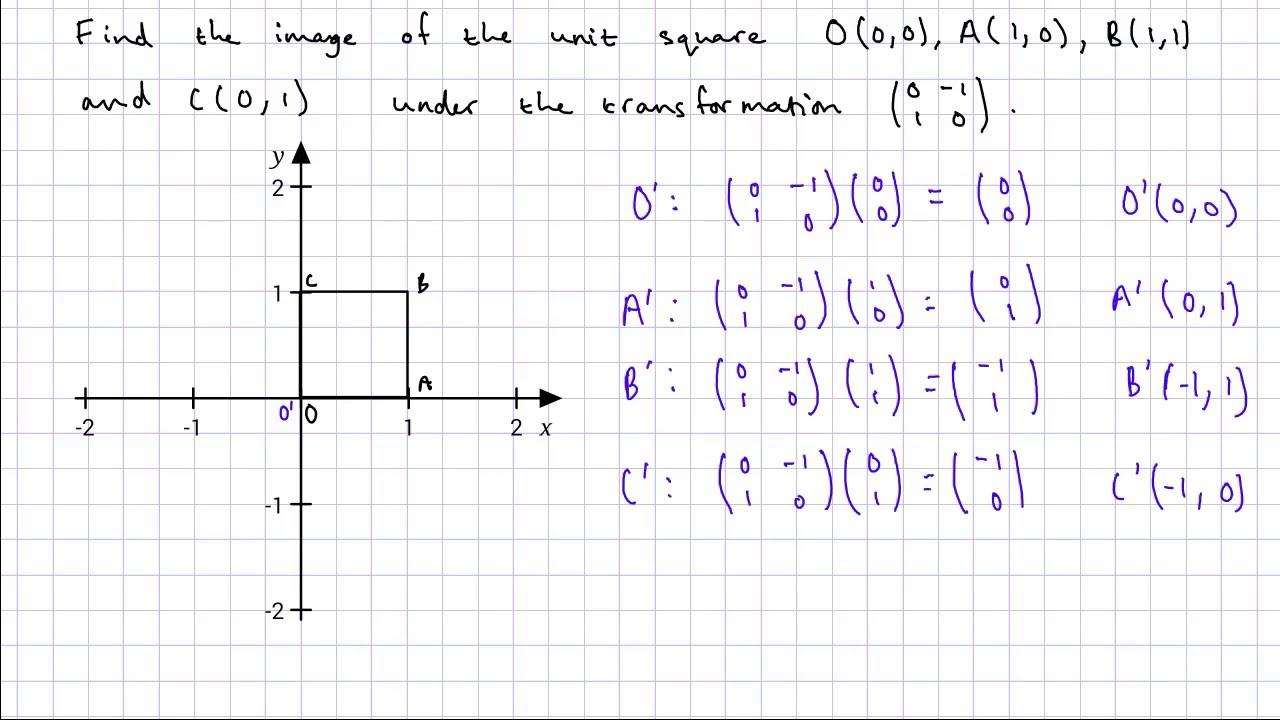 Find the image of the unit square O(0,0), A(1,0), B(1,1)
and C(0,1) under the transformation (0 -1
1 0).
y
2
1
C
B
A
-2
-1
O'
O
1
2
x
-1
-2
O': (0 -1
1 0)(0
0) = (0
0) O'(0,0)
A': (0 -1
1 0)(1
0) = (0
1) A'(0,1)
B': (0 -1
1 0)(1
1) = (-1
1) B'(-1,1)
C': (0 -1
1 0)(0
1) = (-1
0) C'(-1,0)